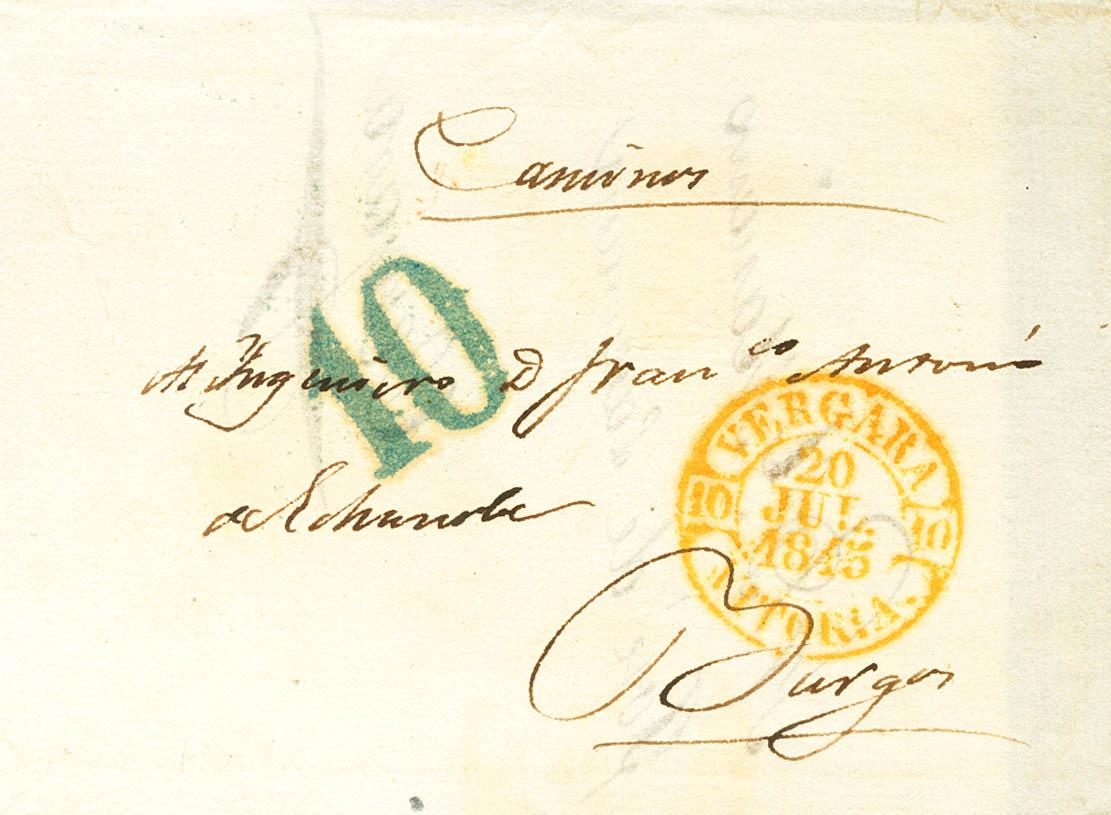 Caminos
10
Al Ingeniero D Fran.co Antonio
de Echanobe
VERGARA
10 20 10
JUL.
1845
VITORIA.
Burgos